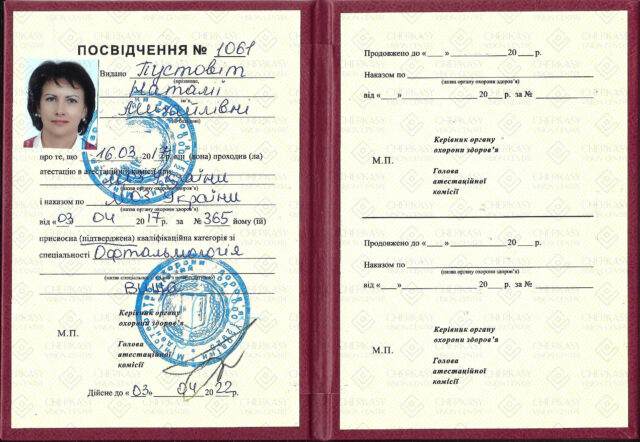 ПОСВІДЧЕННЯ № 1061
Видано Пустовіт
(прізвище,
Наталі
ім'я,
Михайлівні
по батькові)
про те, що 16.03 2017р. він (вона) проходив (ла)
атестацію в атестаційній комісії при
МОЗ України
(назва органу охорони здоров'я)
і наказом по МОЗ України
(назва органу охорони здоров'я)
від «03 04 2017р. за № 365 йому (їй)
присвоєна (підтверджена) кваліфікаційна категорія зі
спеціальності Офтальмологія
Вища
Керівник органу
охорони здоров'я
М.П.
Голова
атестаційної
комісії
Дійсне до «03» 04 2022р.
Продовжено до «___» 20___р.
Наказом по
(назва органу охорони здоров'я)
від «___» 20___р. за №
Керівник органу
охорони здоров'я
М.П.
Голова
атестаційної
комісії
Продовжено до «___» 20___р.
Наказом по
(назва органу охорони здоров'я)
від «___» 20___р. за №
Керівник органу
охорони здоров'я
М.П.
Голова
атестаційної
комісії
CHERKASY
VISION CENTRE